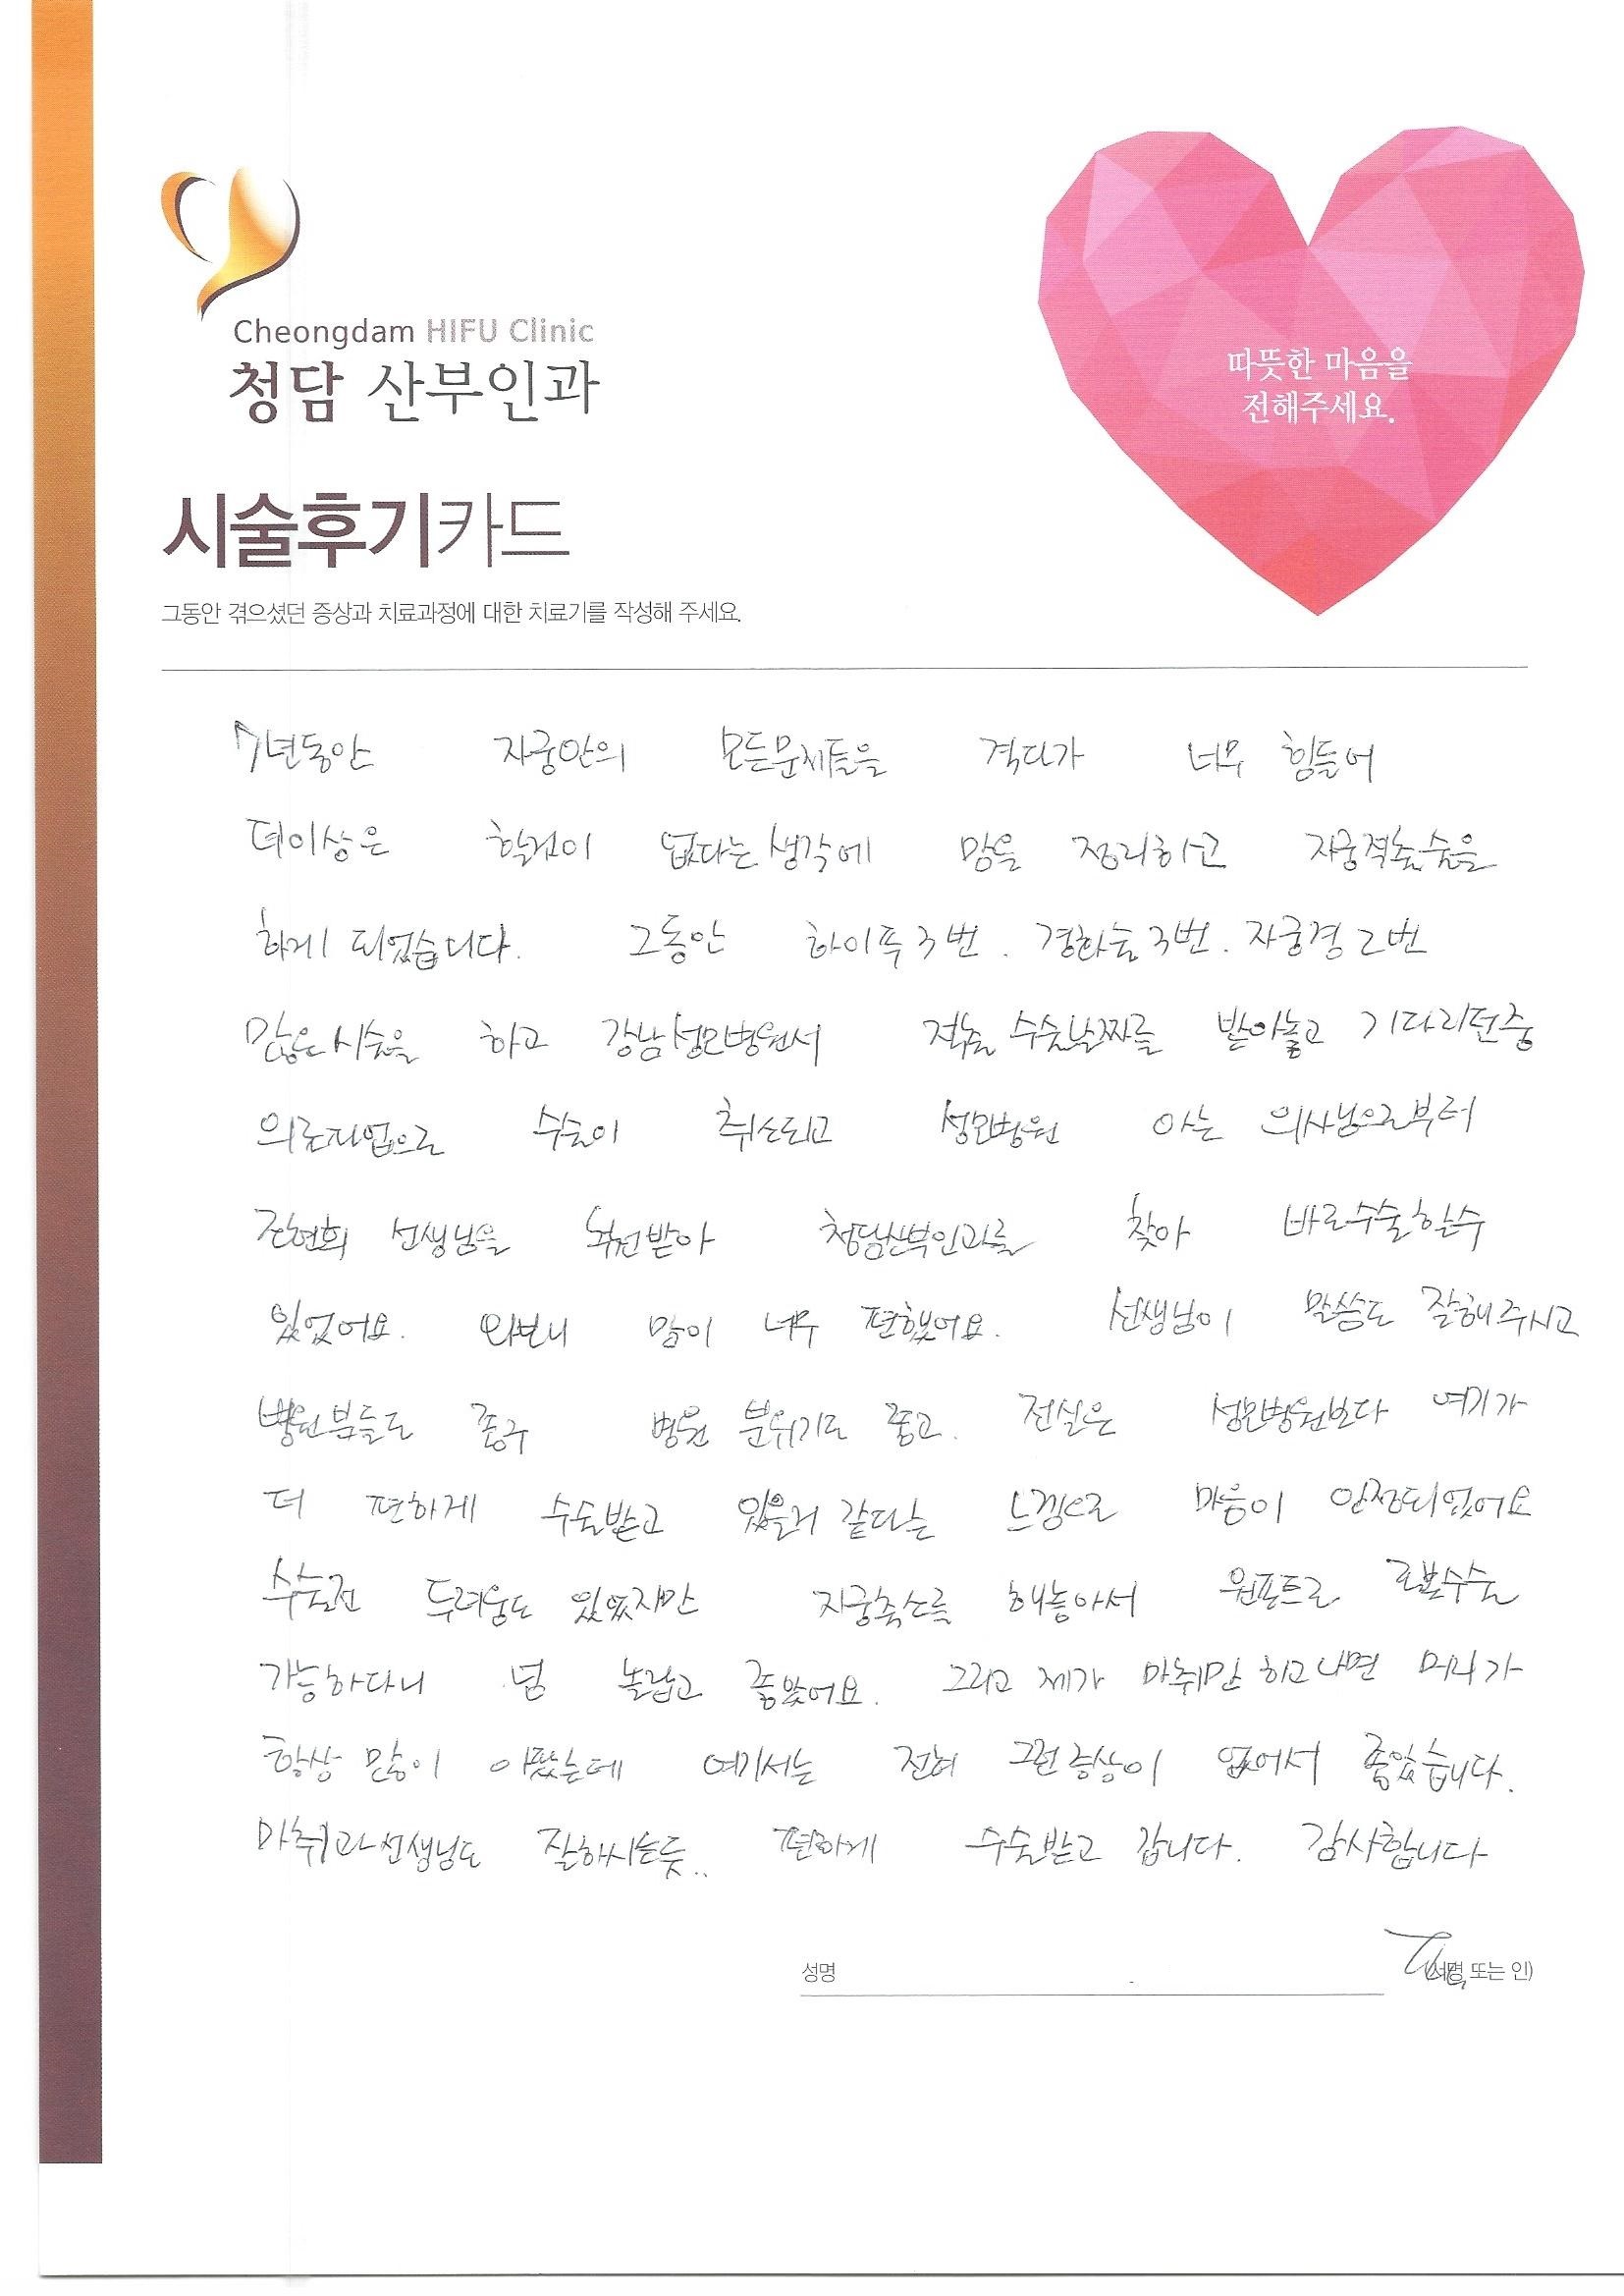 Cheongdam HIFU Clinic
청담 산부인과
따뜻한 마음을
전해주세요.
시술후기카드
그동안 겪으셨던 증상과 치료과정에 대한 치료기를 작성해 주세요.
7년동안 자궁안의 모든문제들을 격다가 너무 힘들어
더이상은 할것이 없다는 생각에 맘을 정리하고 자궁적출술을
하게 되었습니다. 그동안 하이푸 3번. 경화술 3번. 자궁경 2번
많은시술을 하고 강남성모병원서 적출 수술날짜를 받아놓고 기다리던중
의료파업으로 수술이 취소되고 성모병원 아는 의사님으로부터
선생님을 추천받아 청담산부인과를 찾아 바로수술할수
있었어요. 와보니 맘이 너무 편했어요. 선생님이 말씀도 잘해주시고
병원분들도 좋구 병원 분위기도 좋고. 전실은 성모병원보다 여기가
더 편하게 수술받고 있을거 같다는 느낌으로 마음이 안정되었어요
수술전 두려움도 있었지만 자궁축소를 해놓아서 원포트로 로봇수술
가능하다니 넘 놀랍고 좋았어요. 그리고 제가 마취만 하고나면 머리가
항상 많이 아팠는데 여기서는 전혀 그런증상이 없어서 좋았습니다.
마취과선생님도 잘하시는듯.. 편하게 수술받고 갑니다. 감사합니다
성명 (서명 또는 인)